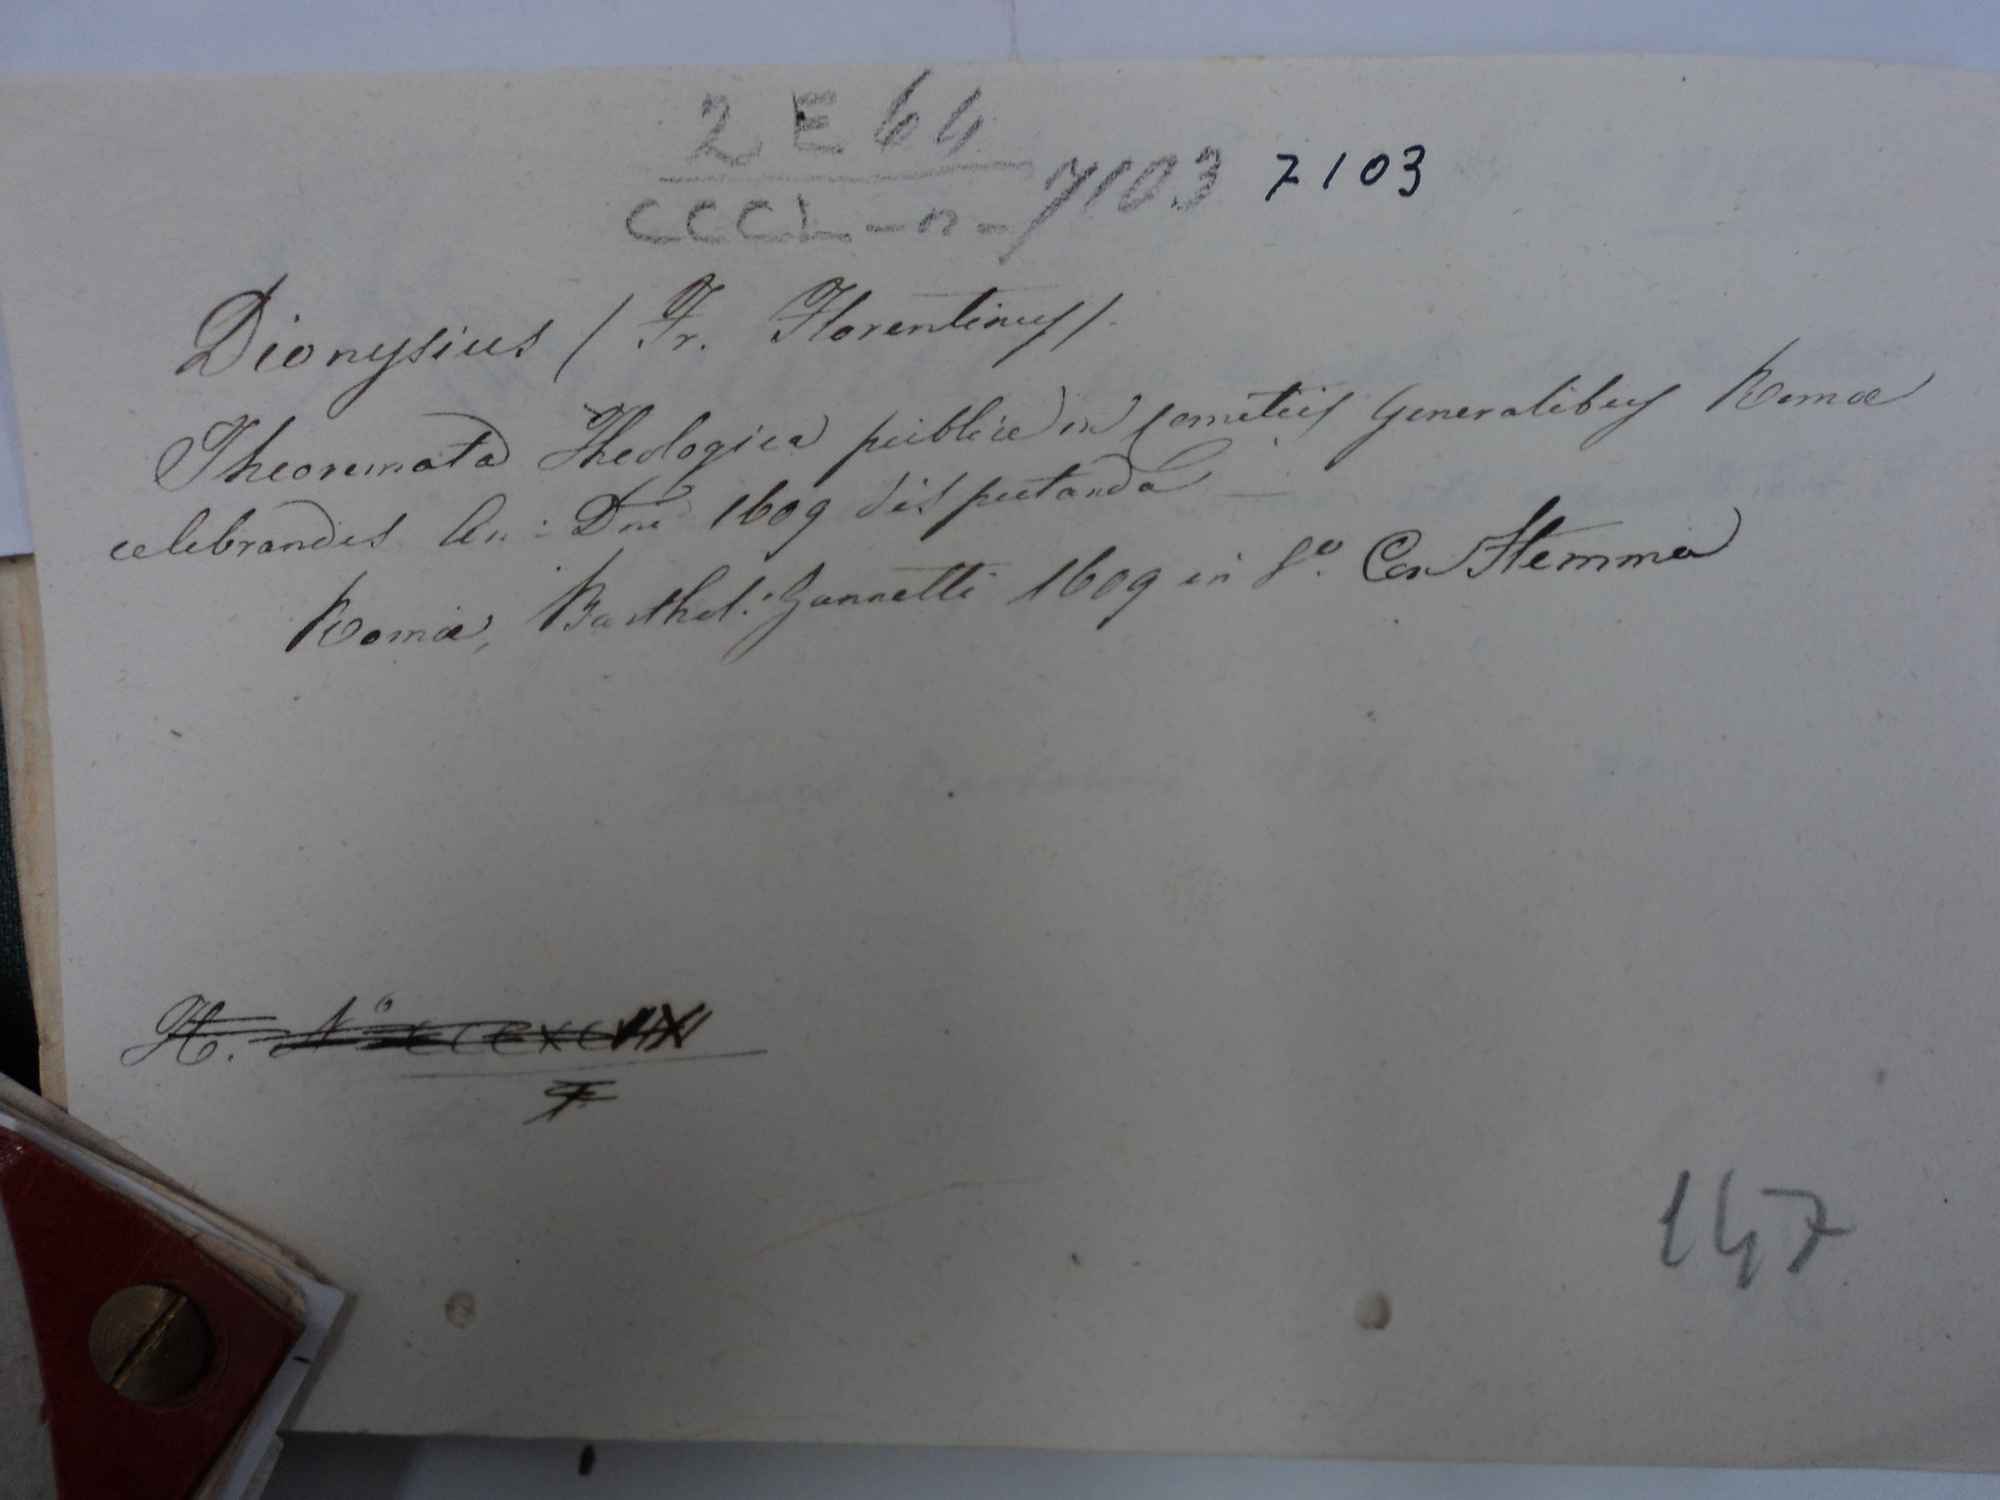 2 E 64
CCCL - n - 7103 7103
Dionysius (Fr. Florentinus).
Theoremata Theologica publice in comitiis Generalibus Romae
celebrandis An: Dni 1609 disputanda
Romae, Barthol: Zannetti 1609 in fo. Con Stemma
H. No
147